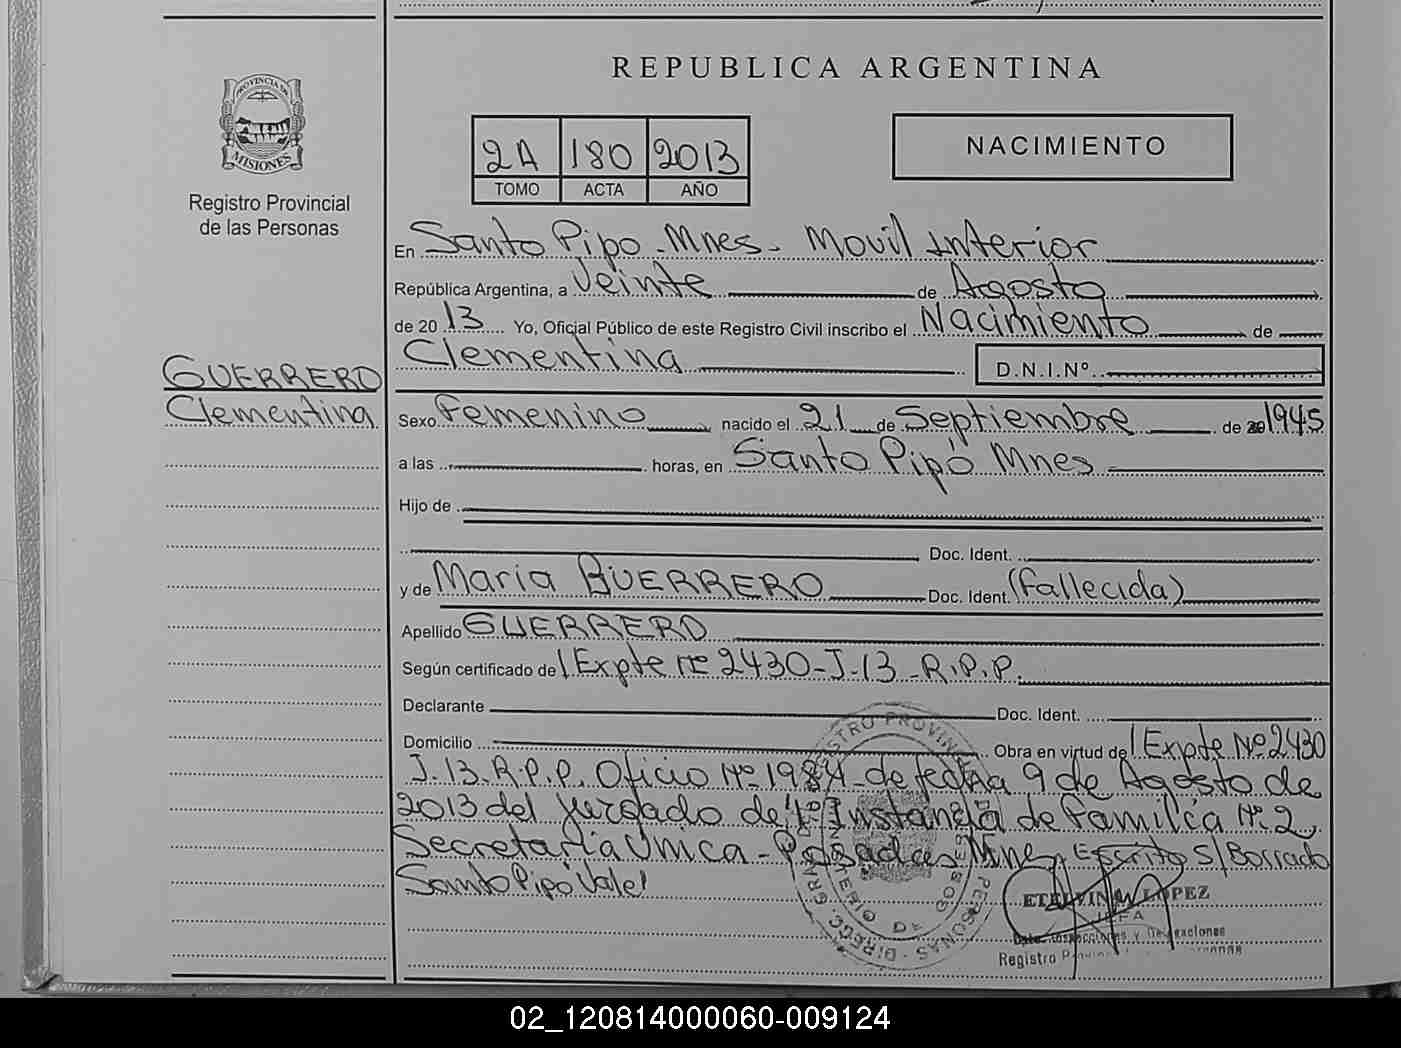 REPUBLICA ARGENTINA
PROVINCIA DE
MISIONES
Registro Provincial
de las Personas
2A 180 2013
TOMO ACTA AÑO
NACIMIENTO
En Santo Pipo - Mnes - Movil Interior
República Argentina, a Veinte de Agosto
de 2013 Yo, Oficial Público de este Registro Civil inscribo el Nacimiento de
Clementina D.N.I.Nº
GUERRERO
Clementina
Sexo Femenino nacido el 21 de Septiembre de 1945
a las horas, en Santo Pipó Mnes
Hijo de
Doc. Ident.
y de Maria GUERRERO Doc. Ident. (Fallecida)
Apellido GUERRERO
Según certificado de Expte nº 2430-J-13-R.P.P.
Declarante Doc. Ident.
Domicilio Obra en virtud de Expte Nº 2430
J-13-R.P.P. Oficio Nº 1984 de fecha 9 de Agosto de
2013 del Juzgado de 1º Instancia de Familia Nº 2
Secretaria Unica - Posadas Mnes. Escrito s/ Borrado
Santo Pipó Vale!
ETELVINA LOPEZ
JEFA
Registro
02_120814000060-009124